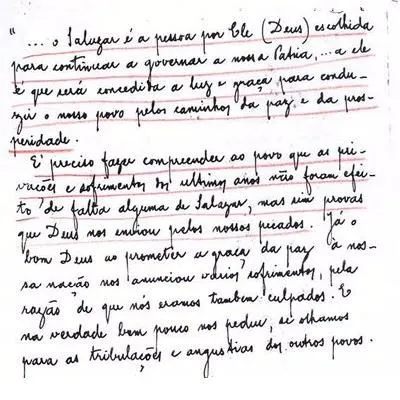 "... o Salazar é a pessoa por Ele (Deus) escolhida
para continuar a governar a nossa Patria, ... a ele
é que será concedida a luz e graça para condu-
zir o nosso povo pelos caminhos da paz e da pros-
peridade.
E' preciso fazer compreender ao povo que as pri-
vações e sofrimentos dos ultimos anos não foram efei-
to de falta alguma de Salazar, mas sim provas
que Deus nos enviou pelos nossos pecados. Já o
bom Deus ao prometer a graça da paz à nos-
sa nação nos anunciou vários sofrimentos, pela
razão de que nós eramos tambem culpados. E
na verdade bem pouco nos pediu, se olhamos
para as tribulações e angustias dos outros povos.